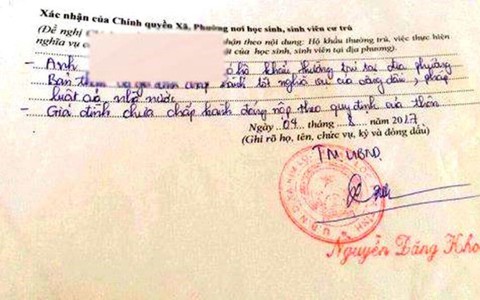 Xác nhận của Chính quyền Xã, Phường nơi học sinh, sinh viên cư trú
(Đề nghị nhận theo nội dung: Hộ khẩu thường trú, việc thực hiện
nghĩa vụ c của học sinh, sinh viên tại địa phương)
- Anh có hộ khẩu thường trú tại địa phương
Bản thân và gia đình chấp hành tốt nghĩa vụ của đảng, pháp
luật của nhà nước
- Gia đình chưa chấp hành đóng nộp theo quy định của thôn
Ngày 04 tháng 8 năm 2017
(Ghi rõ họ, tên, chức vụ, ký và đóng dấu)
TM UBND
Nguyễn Đăng Kho